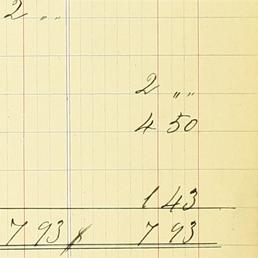 2 „
2 „
4 50
1 43
7 93 7 93